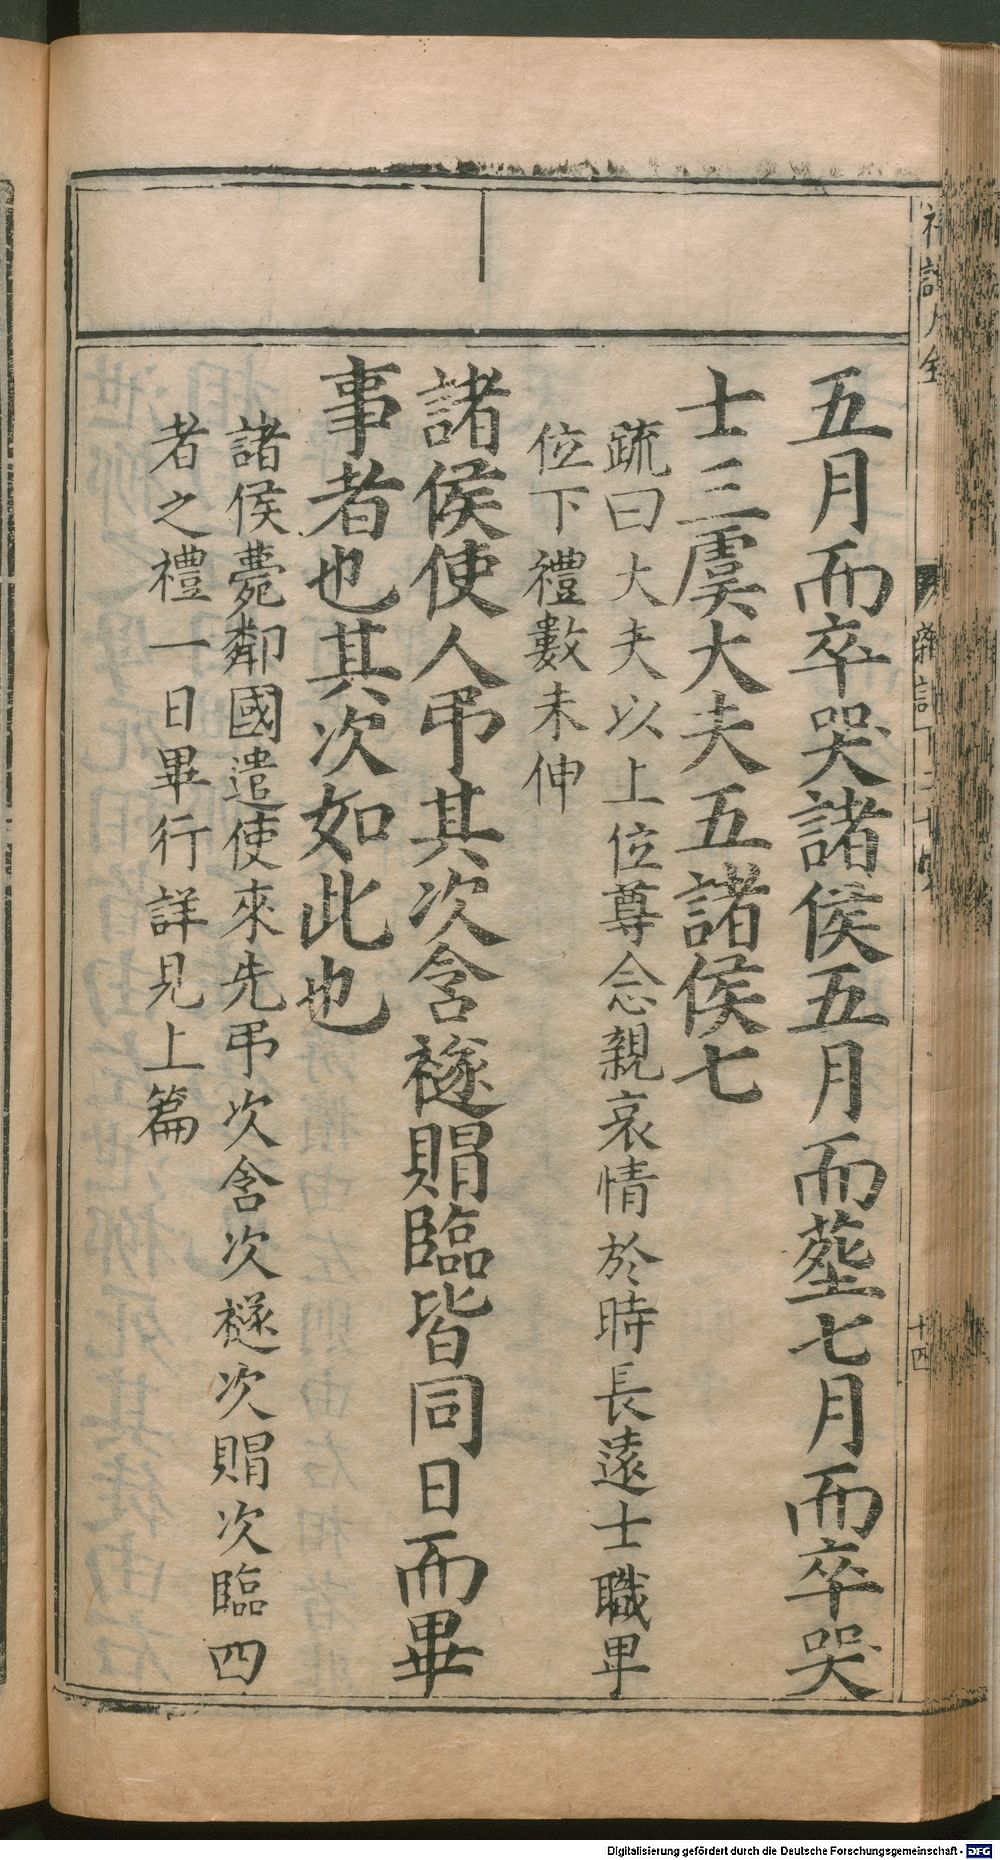 五月而卒哭諸侯五月而塟七月而卒哭
士三虞大夫五諸侯七
疏曰大夫以上位尊念親哀情於時長遠士職卑
位下禮數未伸
諸侯使人弔其次含襚賵臨皆同日而畢
事者也其次如此也
諸侯薨鄰國遣使來先弔次含次襚次賵次臨四
者之禮一日畢行詳見上篇
十四
Digitalisierung gefördert durch die Deutsche Forschungsgemeinschaft - DFG